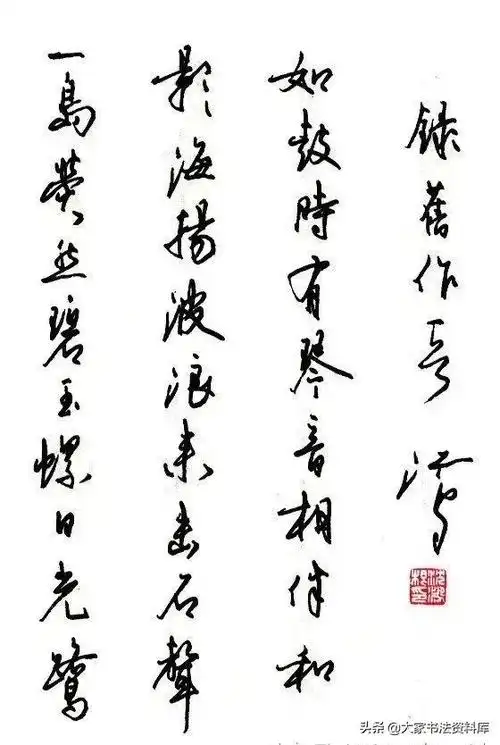 一島煢然碧玉螺日光鷺
影海揚波浪來擊石聲
如鼓時有琴音相伴和
錄舊作一首
头条 @大家书法资料库